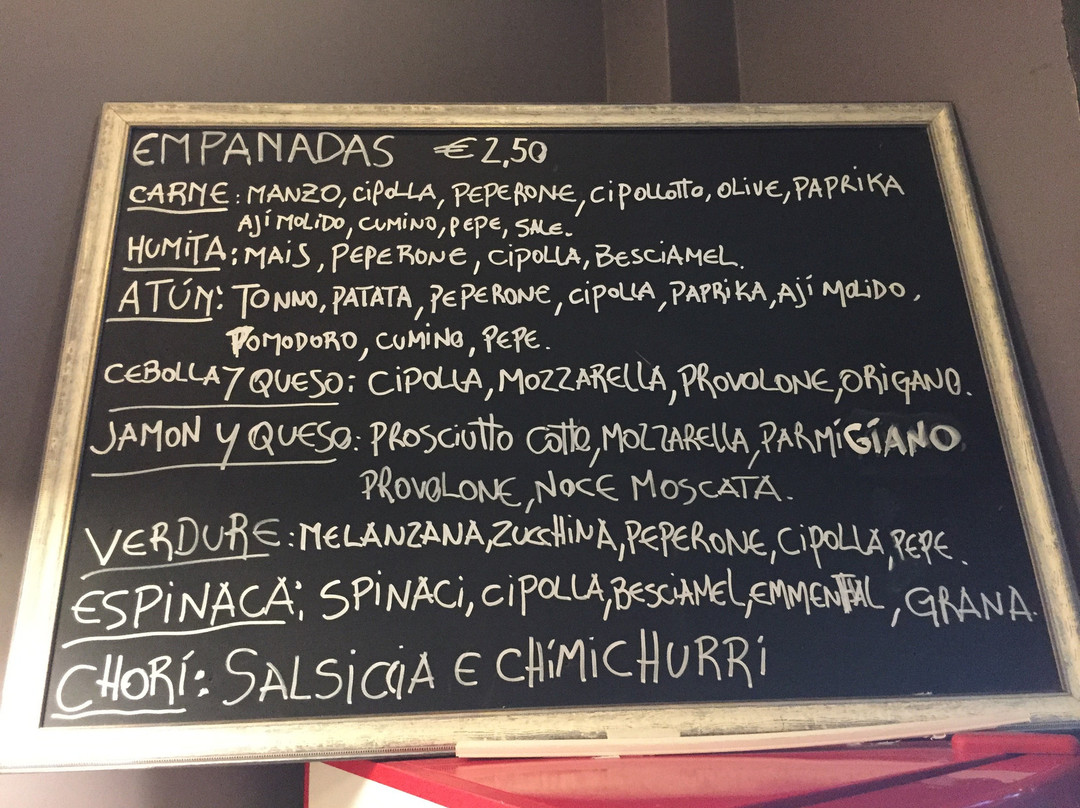 EMPANADAS €2,50
CARNE: MANZO, CIPOLLA, PEPERONE, CIPOLLOTTO, OLIVE, PAPRIKA
AJÍ MOLIDO, CUMINO, PEPE, SALE.
HUMITA: MAIS, PEPERONE, CIPOLLA, BESCIAMEL.
ATÚN: TONNO, PATATA, PEPERONE, CIPOLLA, PAPRIKA, AJÍ MOLIDO,
POMODORO, CUMINO, PEPE.
CEBOLLA Y QUESO: CIPOLLA, MOZZARELLA, PROVOLONE, ORIGANO.
JAMON Y QUESO: PROSCIUTTO COTTO, MOZZARELLA, PARMIGIANO
PROVOLONE, NOCE MOSCATA.
VERDURE: MELANZANA, ZUCCHINA, PEPERONE, CIPOLLA, PEPE.
ESPINACA: SPINACI, CIPOLLA, BESCIAMEL, EMMENTAL, GRANA.
CHORÍ: SALSICCIA E CHIMICHURRI